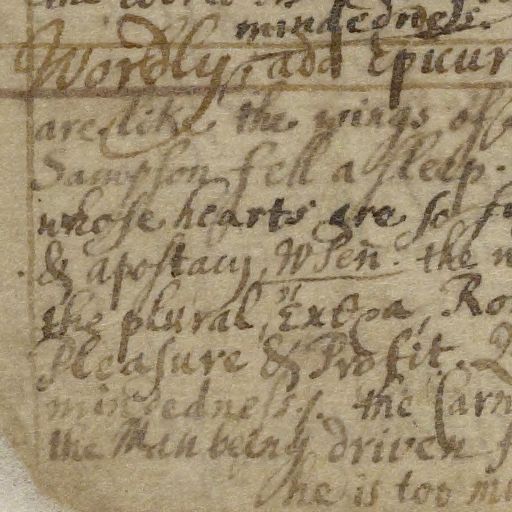 the world is
mindedness.
Wordly, add Epicur
are like the wings of
Sampson fell a sleep.
whose hearts are so f
& apostacy, W Pen. the
the plural, Ἐχθρα, Ro
Pleasure & Profit.
mindedness, the Carn
the Man being driven f
he is too m